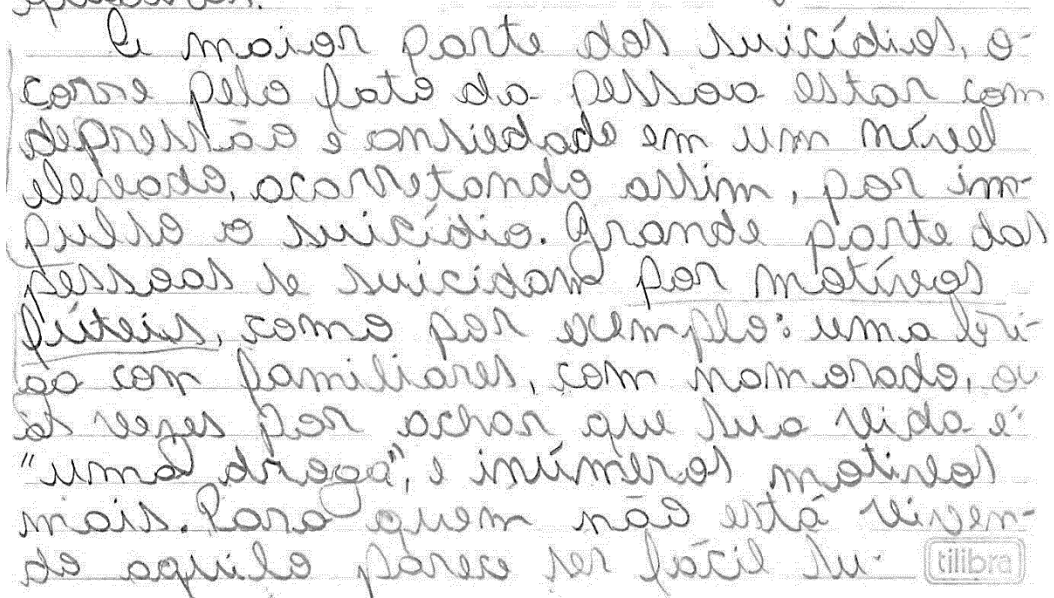 A maior parte dos suicídios, o-
corre pelo fato da pessoa estar com
depressão e ansiedade em um nível
elevado, acarretando assim, por im-
pulso o suicídio. Grande parte das
pessoas se suicidam por motivos
fúteis, como por exemplo: uma bri-
ga com familiares, com namorado, ou
às vezes por achar que sua vida é
"uma droga", e inúmeros motivos
mais. Para quem não está viven-
do aquilo parece ser fácil su-
tilibra